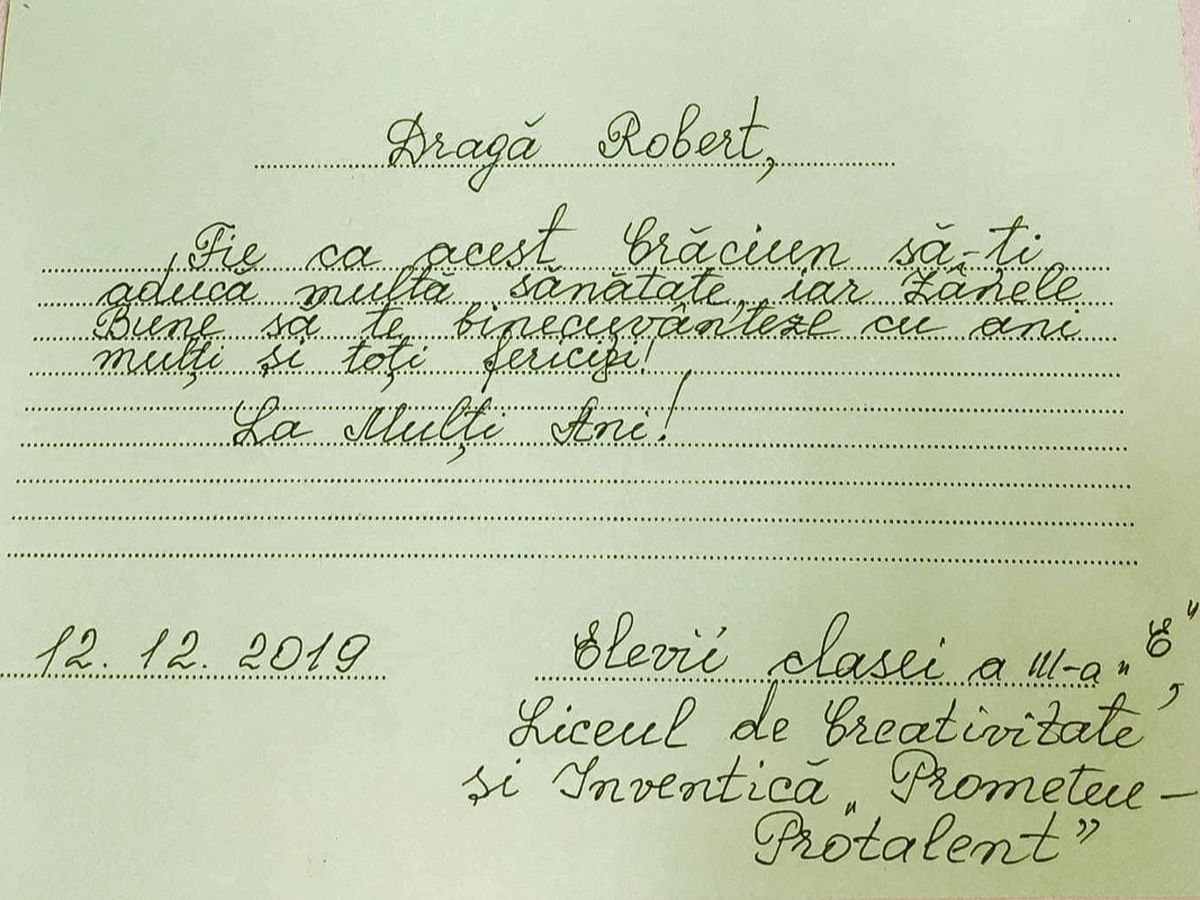 Dragă Robert,
Fie ca acest Crăciun să-ti
aducă multă sănătate, iar Zânele
Bune să te binecuvânteze cu ani
mulți și toți fericiți!
La Mulți Ani!
12. 12. 2019
Elevii clasei a III-a „E",
Liceul de Creativitate
și Inventică „Prometeu-
Protalent”